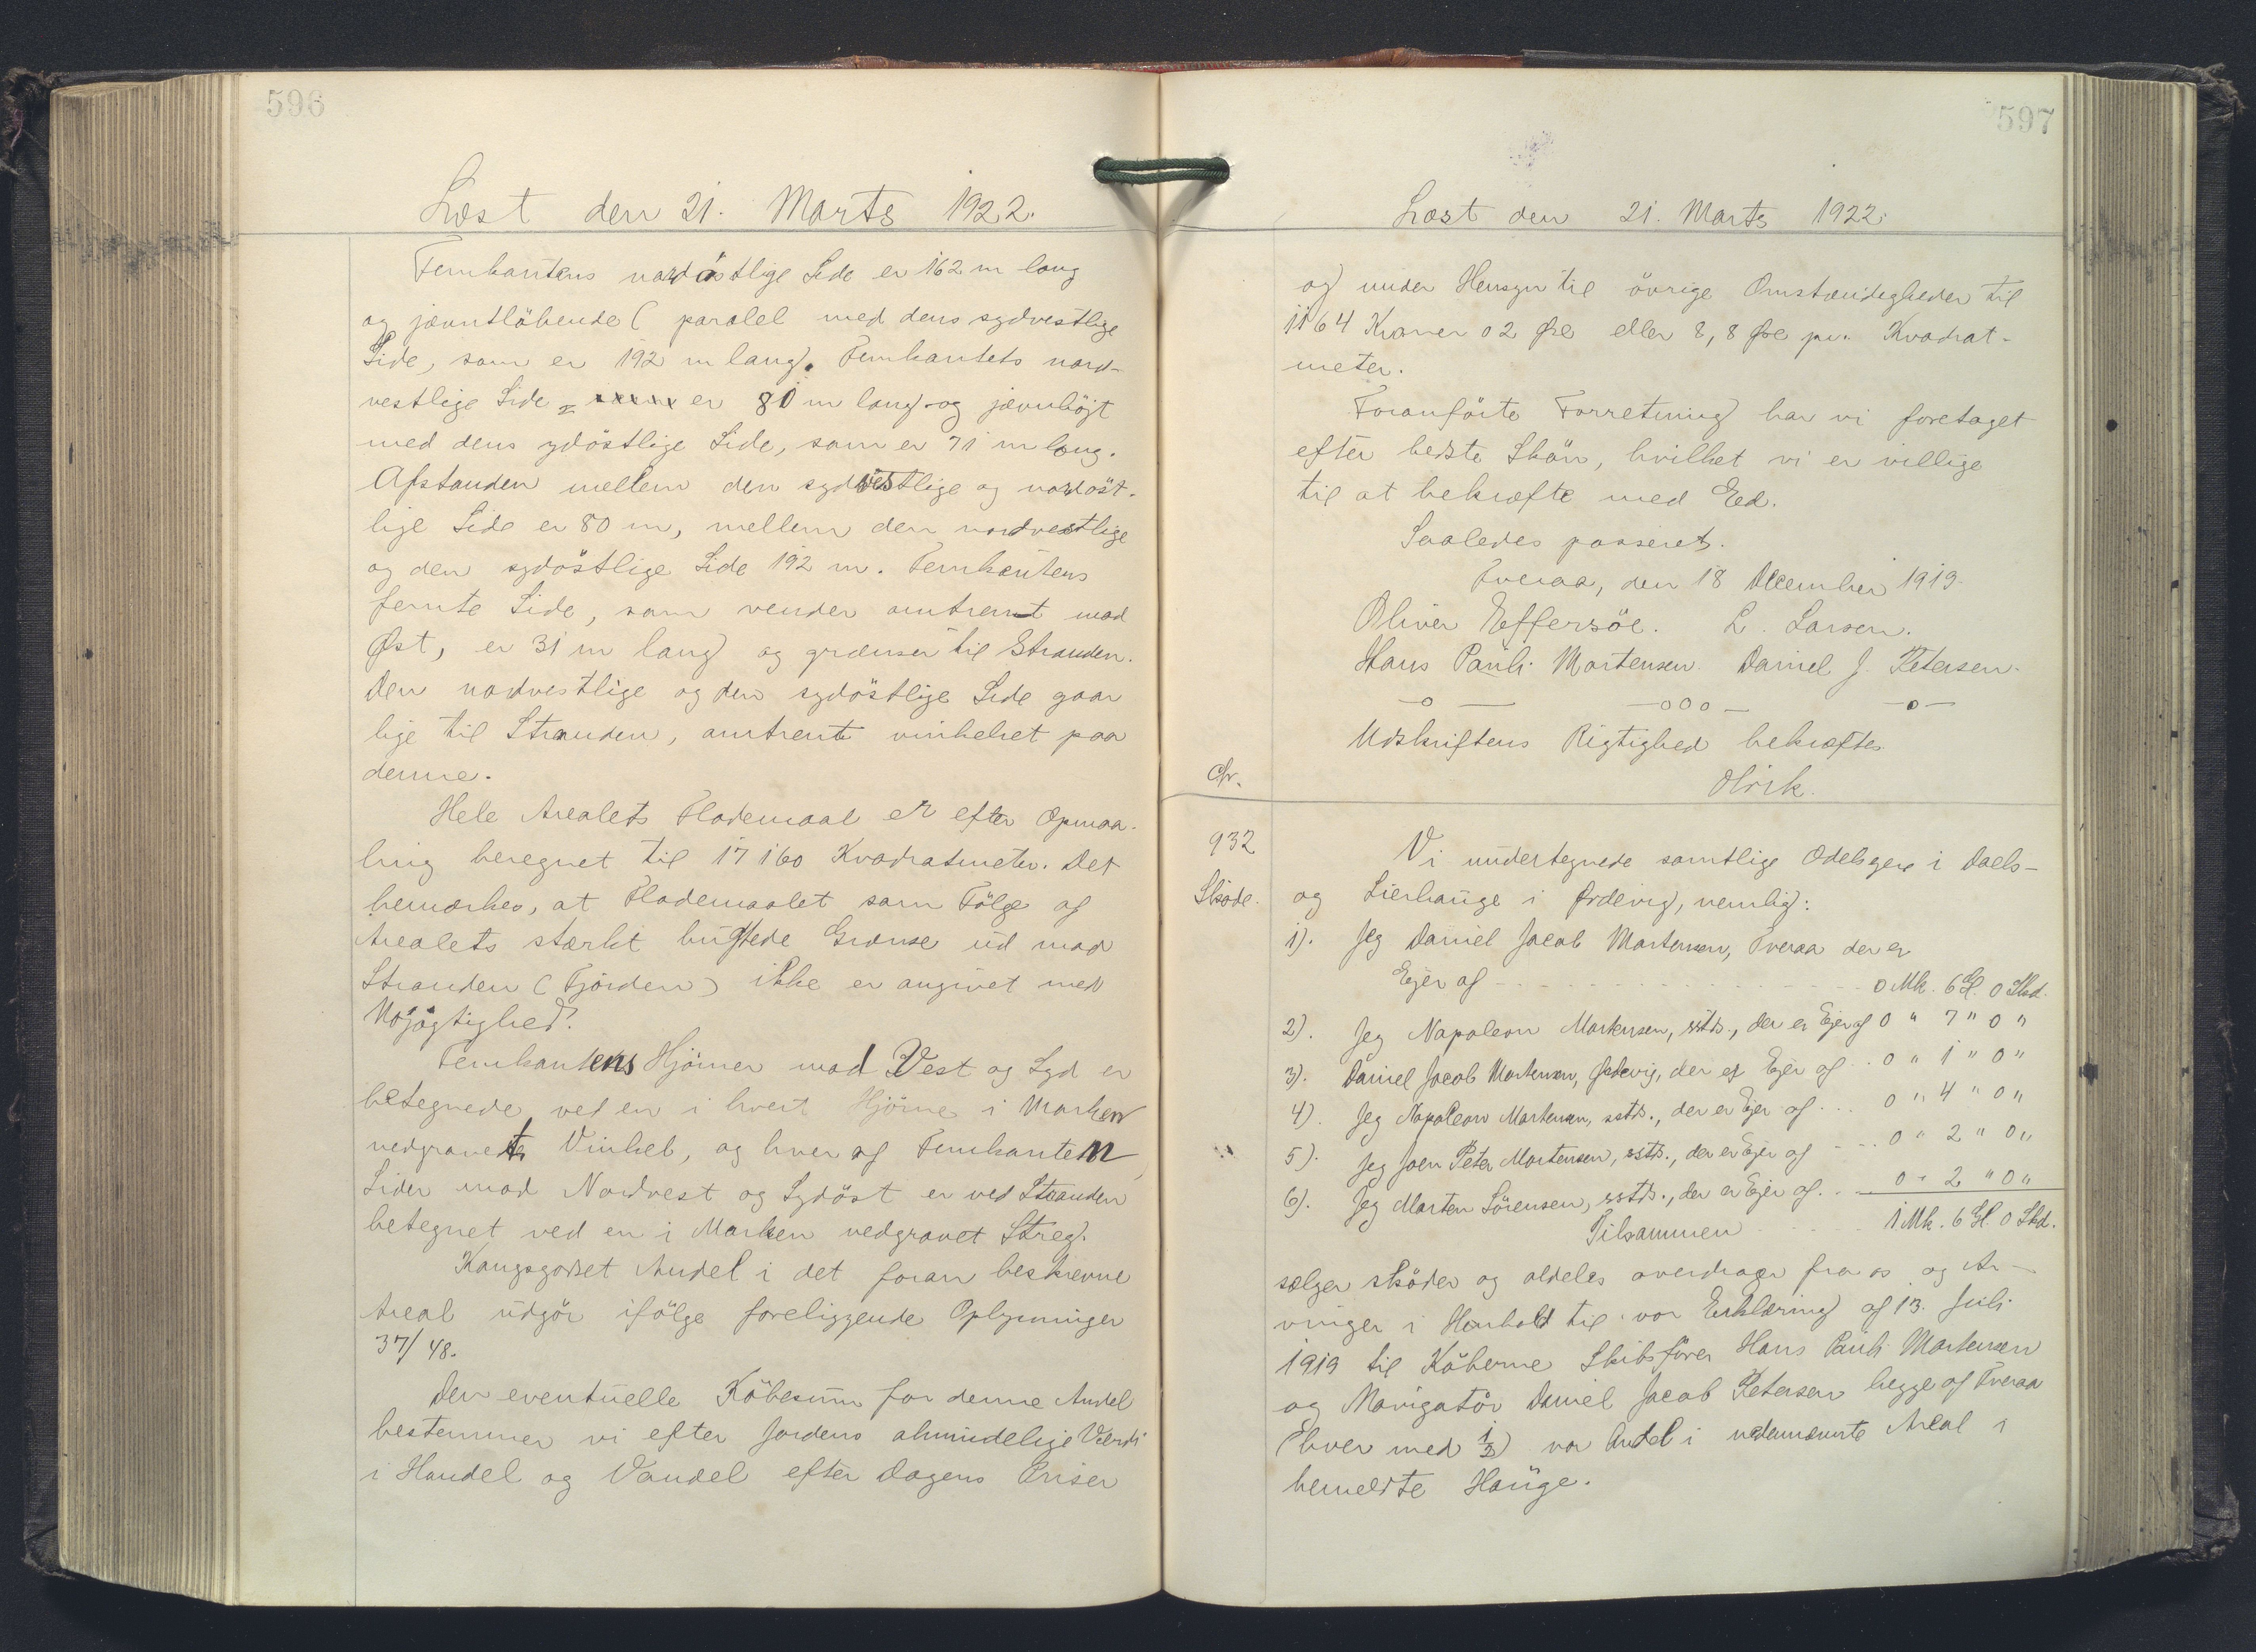 596
Læst den 21. Marts 1922.
Femkantens nordöstlige Side er 162 m lang
og jævntlöbende (paralel med dens sydvestlige
Side, som er 192 m lang). Femkantets nord-
vestlige Side er 80 m lang og jævnhöjt
med dens ydöstlige Side, som er 71 m lang.
Afstanden mellem den sydvestlige og nordöst-
lige Side er 80 m, mellem den nordvestlige
og den sydöstlige Side 192 m. Femkantens
femte Side, som vender omtremt mod
Øst, er 31 m lang og grænser til Stranden.
Den nordvestlige og den sydöstlige Side gaar
lige til Stranden, omtrent vinkelret paa
denne.
Hele Arealets Flademaal er efter Opmaa-
ling beregnet til 17160 Kvadratmeter. Det
bemærkes, at Flademaalet som Fölge af
Arealets stærkt bugtede Grænse ud mod
Stranden (Fjorden) ikke er angivet med
Nöjagtighed.
Femkantens Hjörner mod Vest og Syd er
betegnede ved en i hvert Hjörne i Marken
nedgravet Vinkel, og hver af Femkanten
Sider mod Nordvest og Sydöst er ved Stranden
betegnet ved en i Marken nedgravet Streg.
Kongsgodset Andel i det foran beskrevne
Areal udgör ifölge foreliggende Oplysninger
37/48.
Den eventuelle Köbesum for denne Andel
bestemmer vi efter Jordens almindelige Værdi
i Handel og Vandel efter Dagens Priser
597
Læst den 21. Marts 1922.
og under Hensyn til övrige Omstændigheder til
1164 Kroner 02 Øre eller 8,8 Øre pr. Kvadrat-
meter.
Foranförte Forretning har vi foretaget
efter bedste Skön, hvilket vi er villige
til at bekræfte med Eed.
Saaledes passeret.
Tveraa, den 18 December 1919.
Oliver Effersöe. L. Larsen.
Hans Pauli Mortensen. Daniel J. Petersen.
—o— —ooo— —o—
Udskriftens Rigtighed bekræftes
Olrik.
932
Skøde.
Vi undertegnede samtlige Odelsejere i Daels-
og Lierhauge i Ørdevig, nemlig:
1). Jeg Daniel Jacob Mortensen, Tveraa der er
Ejer af - - - 0 Mk. 6 Gl. 0 Skd.
2). Jeg Napoleon Mortensen, sstds., der er Ejer af 0 " 7 " 0 "
3). Daniel Jacob Mortensen, Ørdevig, der er Ejer af .. 0 " 1 " 0 "
4). Jeg Napoleon Mortensen, sstds., der er Ejer af ... 0 " 4 " 0 "
5). Jeg Joen Peter Mortensen, sstds., der er Ejer af ... 0 " 2 " 0 "
6). Jeg Morten Sörensen, sstds., der er Ejer af ... 0 " 2 " 0 "
Tilsammen 1 Mk. 6 Gl. 0 Skd.
sælger skøder og aldeles overdrager fra os og Ar-
vinger i Henhold til vor Erklæring af 13. Juli
1919 til Köberne Skibsförer Hans Pauli Mortensen
og Navigatör Daniel Jacob Petersen begge af Tveraa
(hver med 1/2) vor Andel i nedennævnte Areal i
bemeldte Hauge.